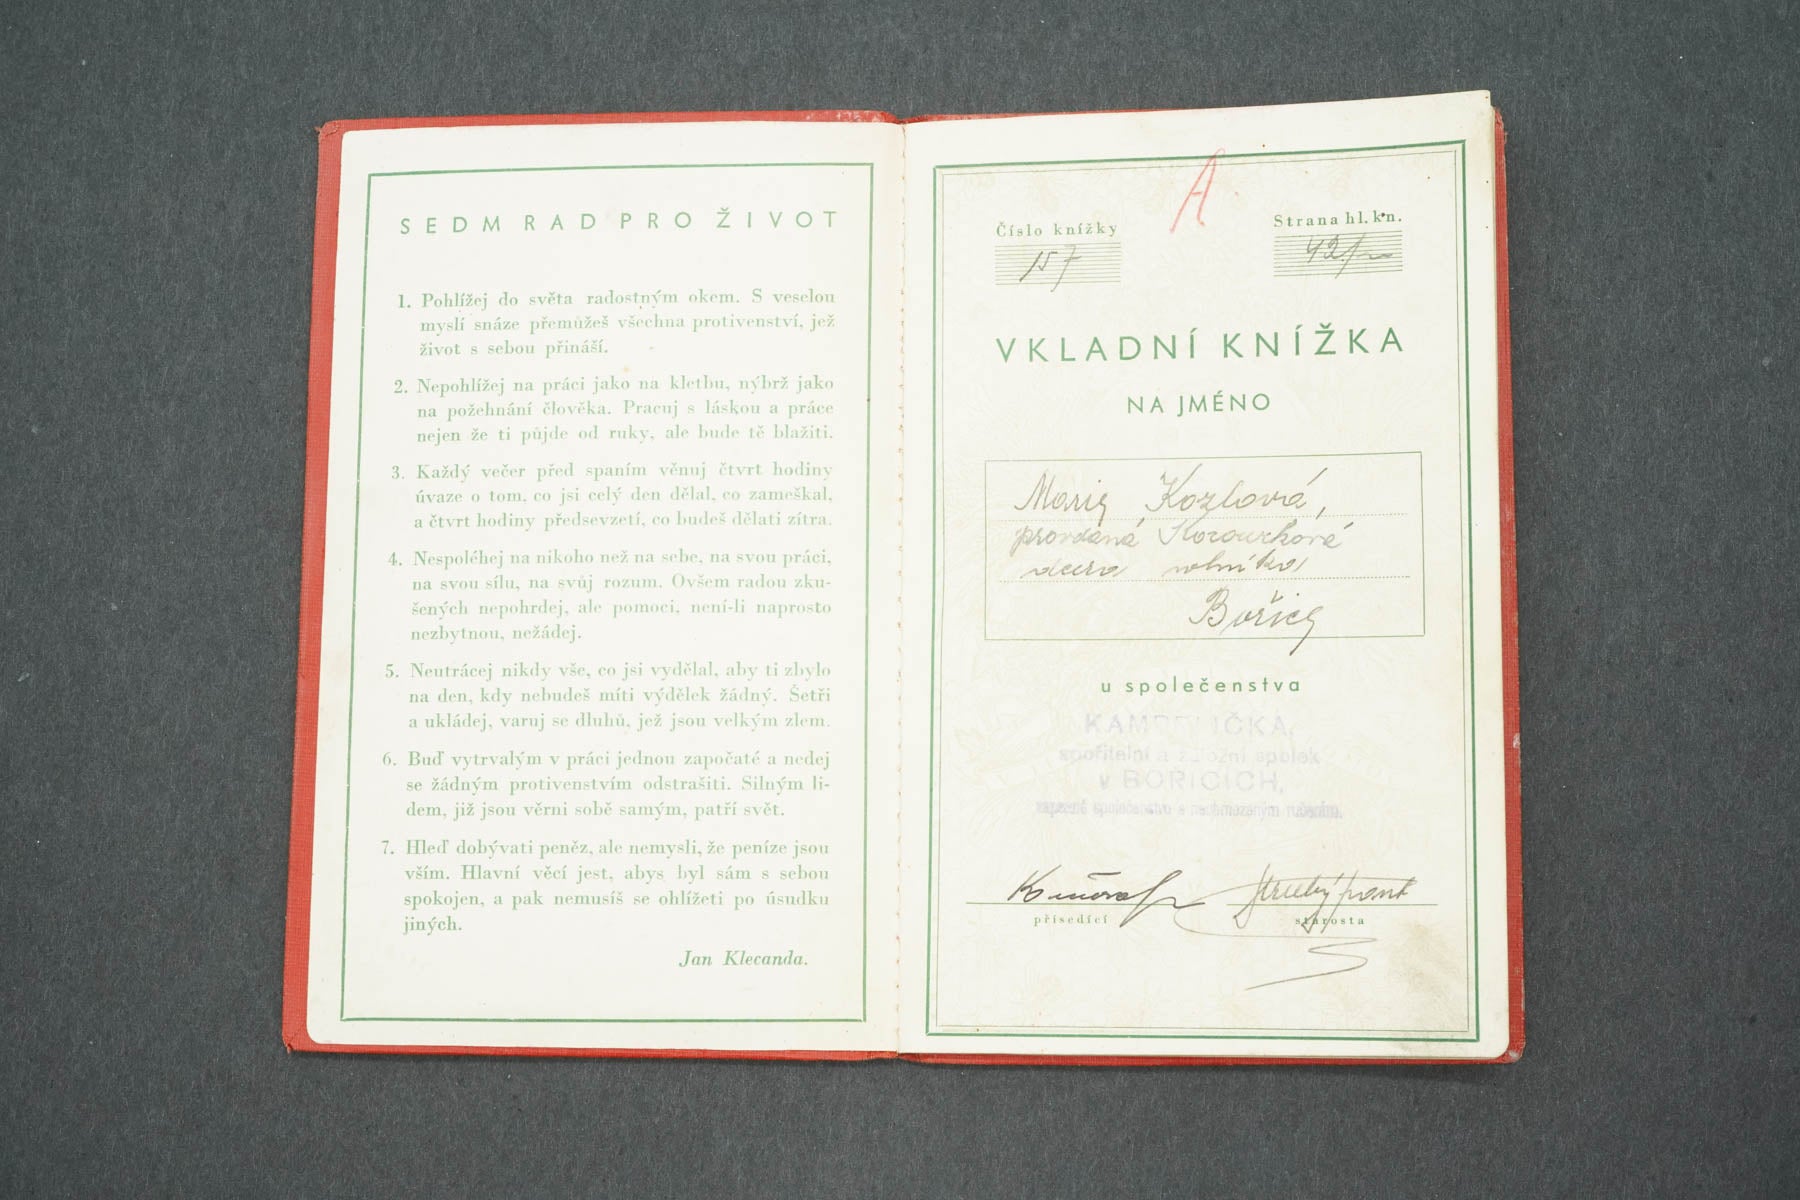 SEDM RAD PRO ŽIVOT
1. Pohlížej do světa radostným okem. S veselou
myslí snáze přemůžeš všechna protivenství, jež
život s sebou přináší.
2. Nepohlížej na práci jako na kletbu, nýbrž jako
na požehnání člověka. Pracuj s láskou a práce
nejen že ti půjde od ruky, ale bude tě blažiti.
3. Každý večer před spaním věnuj čtvrt hodiny
úvaze o tom, co jsi celý den dělal, co zameškal,
a čtvrt hodiny předsevzetí, co budeš dělati zítra.
4. Nespoléhej na nikoho než na sebe, na svou práci,
na svou sílu, na svůj rozum. Ovšem radou zku-
šených nepohrdej, ale pomoci, není-li naprosto
nezbytnou, nežádej.
5. Neutrácej nikdy vše, co jsi vydělal, aby ti zbylo
na den, kdy nebudeš míti výdělek žádný. Šetři
a ukládej, varuj se dluhů, jež jsou velkým zlem.
6. Buď vytrvalým v práci jednou započaté a nedej
se žádným protivenstvím odstrašiti. Silným li-
dem, již jsou věrni sobě samým, patří svět.
7. Hleď dobývati peněz, ale nemysli, že peníze jsou
vším. Hlavní věcí jest, abys byl sám s sebou
spokojen, a pak nemusíš se ohlížeti po úsudku
jiných.
Jan Klecanda.
A
Číslo knížky
157
Strana hl. kn.
VKLADNÍ KNÍŽKA
NA JMÉNO
Kozlová,
provdaná
dcera rolníka
u společenstva
KAMPELIČKA,
spořitelní a záložní spolek
v BOŘICÍCH,
zapsané společenstvo s neobmezeným ručením.
přísedící
starosta